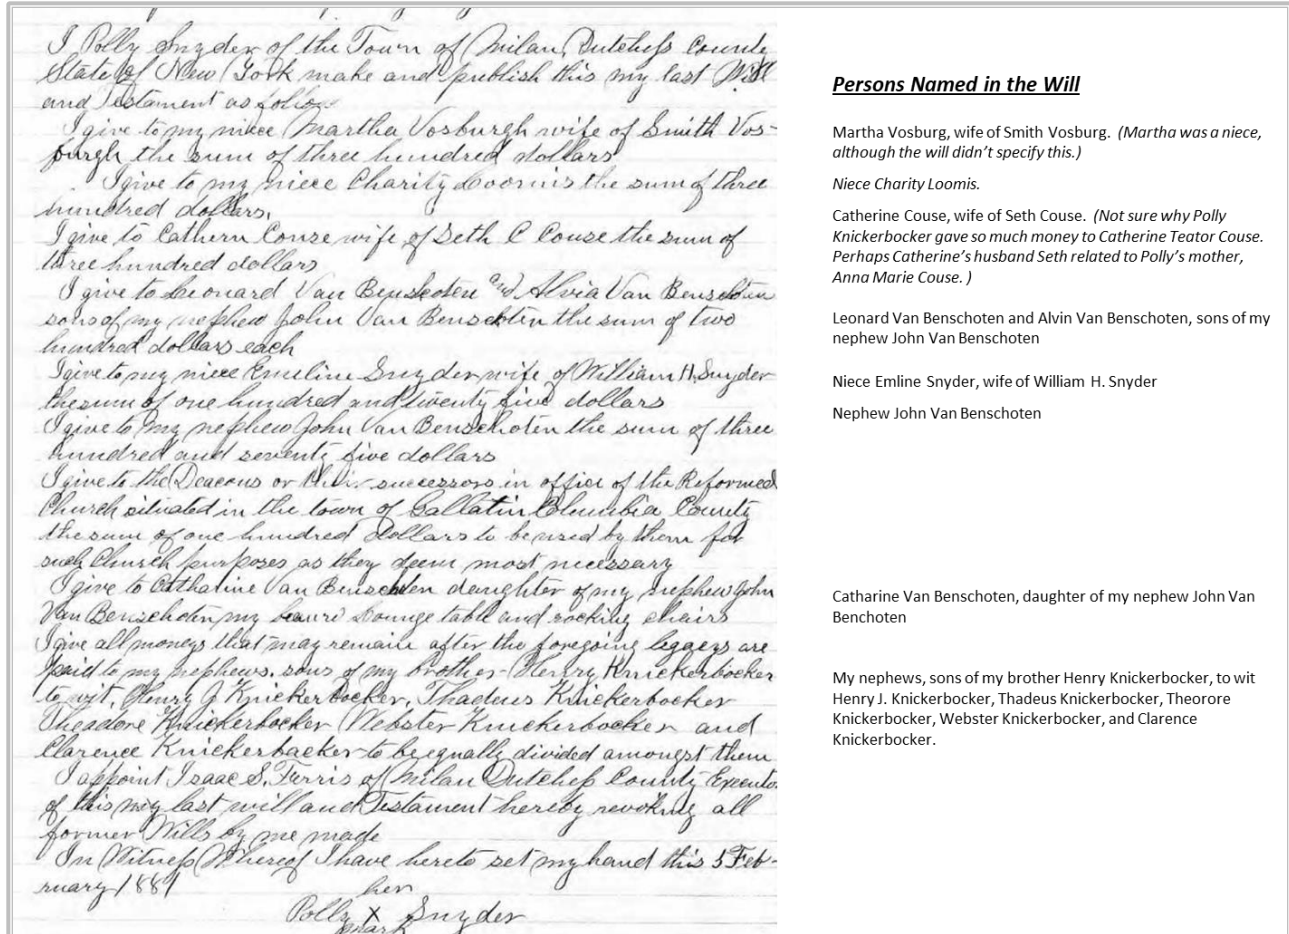 I Polly Snyder of the Town of Milan, Dutchess County
State of New York make and publish this my last Will
and Testament as follow
I give to my niece Martha Vosburgh wife of Smith Vos-
burgh the sum of three hundred dollars
I give to my niece Charity Loomis the sum of three
hundred dollars.
I give to Cathern Couse wife of Seth C Couse the sum of
three hundred dollars
I give to Leonard Van Benschoten and Alvia Van Benschoten
sons of my nephew John Van Benschoten the sum of two
hundred dollars each
I give to my niece Emeline Snyder wife of William H. Snyder
the sum of one hundred and twenty five dollars
I give to my nephew John Van Benschoten the sum of three
hundred and seventy five dollars
I give to the Deacons or their successors in office of the Reformed
Church situated in the town of Gallatin Columbia County
the sum of one hundred dollars to be used by them for
such Church purposes as they deem most necessary
I give to Catharine Van Benschoten daughter of my nephew John
Van Benschoten my lounge table and rocking chairs
I give all moneys that may remain after the foregoing legacys are
paid to my nephews, sons of my brother Henry Knickerbocker
to wit, Henry J Knickerbocker, Thadeus Knickerbocker
Theadore Knickerbocker Webster Knickerbocker and
Clarence Knickerbacker to be equally divided amongst them
I appoint Isaac S. Ferris of Milan Dutchess County Executo
of this my last will and Testament hereby revoking all
former Wills by me made
In Witness Whereof I have hereto set my hand this 5 Feb-
ruary 1881
her
Polly X Snyder
mark
Persons Named in the Will
Martha Vosburg, wife of Smith Vosburg. (Martha was a niece,
although the will didn't specify this.)
Niece Charity Loomis.
Catherine Couse, wife of Seth Couse. (Not sure why Polly
Knickerbocker gave so much money to Catherine Teator Couse.
Perhaps Catherine's husband Seth related to Polly's mother,
Anna Marie Couse. )
Leonard Van Benschoten and Alvin Van Benschoten, sons of my
nephew John Van Benschoten
Niece Emline Snyder, wife of William H. Snyder
Nephew John Van Benschoten
Catharine Van Benschoten, daughter of my nephew John Van
Benchoten
My nephews, sons of my brother Henry Knickerbocker, to wit
Henry J. Knickerbocker, Thadeus Knickerbocker, Theorore
Knickerbocker, Webster Knickerbocker, and Clarence
Knickerbocker.